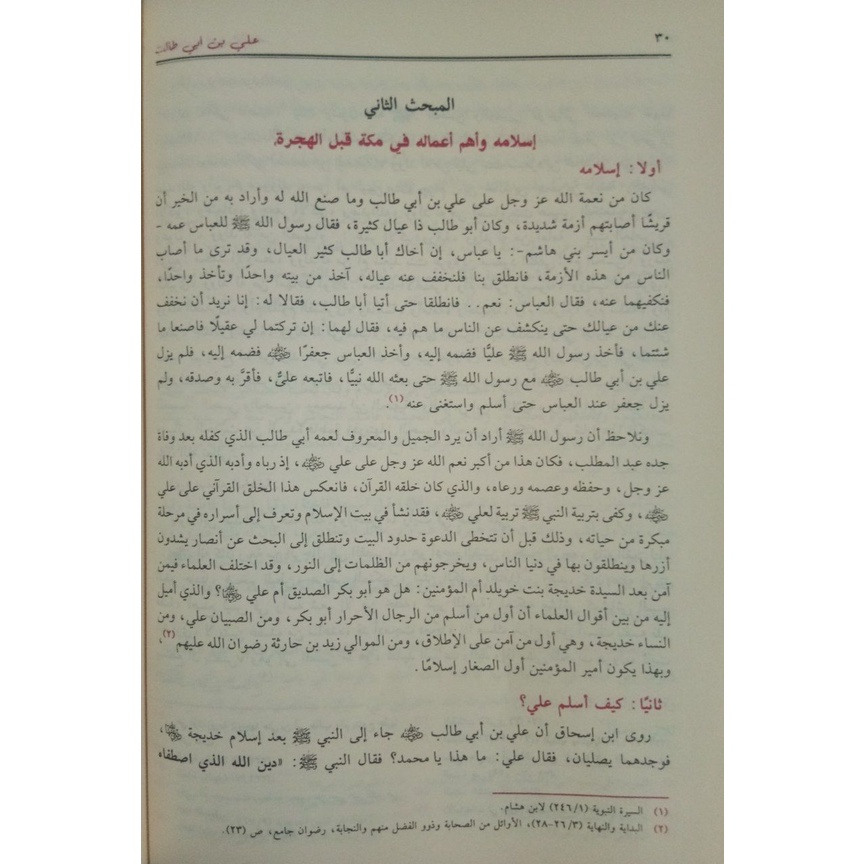 ٣٠
علي بن أبي طالب
المبحث الثاني
إسلامه وأهم أعماله في مكة قبل الهجرة.
أولا: إسلامه
كان من نعمة الله عز وجل على علي بن أبي طالب وما صنع الله له وأراد به من الخير أن
قريشًا أصابتهم أزمة شديدة، وكان أبو طالب ذا عيال كثيرة، فقال رسول الله ﷺ للعباس عمه -
وكان من أيسر بني هاشم-: يا عباس، إن أخاك أبا طالب كثير العيال، وقد ترى ما أصاب
الناس من هذه الأزمة، فانطلق بنا فلنخفف عنه عياله، آخذ من بيته واحدًا وتأخذ واحدًا،
فنكفيهما عنه، فقال العباس: نعم.. فانطلقا حتى أتيا أبا طالب، فقالا له: إنا نريد أن نخفف
عنك من عيالك حتى ينكشف عن الناس ما هم فيه، فقال لهما: إن تركتما لي عقيلًا فاصنعا ما
شئتما، فأخذ رسول الله ﷺ عليًّا فضمه إليه، وأخذ العباس جعفرًا رضي الله عنه فضمه إليه، فلم يزل
علي بن أبي طالب رضي الله عنه مع رسول الله ﷺ حتى بعثه الله نبيًّا، فاتبعه عليٌّ، فأقرَّ به وصدقه، ولم
يزل جعفر عند العباس حتى أسلم واستغنى عنه(١).
ونلاحظ أن رسول الله ﷺ أراد أن يرد الجميل والمعروف لعمه أبي طالب الذي كفله بعد وفاة
جده عبد المطلب، فكان هذا من أكبر نعم الله عز وجل على علي رضي الله عنه، إذ رباه وأدبه الذي أدبه الله
عز وجل، وحفظه وعصمه ورعاه، والذي كان خلقه القرآن، فانعكس هذا الخلق القرآني على علي
رضي الله عنه، وكفى بتربية النبي ﷺ تربية لعلي رضي الله عنه، فقد نشأ في بيت الإسلام وتعرف إلى أسراره في مرحلة
مبكرة من حياته، وذلك قبل أن تتخطى الدعوة حدود البيت وتنطلق إلى البحث عن أنصار يشدون
أزرها وينطلقون بها في دنيا الناس، ويخرجونهم من الظلمات إلى النور، وقد اختلف العلماء فيمن
آمن بعد السيدة خديجة بنت خويلد أم المؤمنين: هل هو أبو بكر الصديق أم علي رضي الله عنهما؟ والذي أميل
إليه من بين أقوال العلماء أن أول من أسلم من الرجال الأحرار أبو بكر، ومن الصبيان علي، ومن
النساء خديجة، وهي أول من آمن على الإطلاق، ومن الموالي زيد بن حارثة رضوان الله عليهم(٢)،
وبهذا يكون أمير المؤمنين أول الصغار إسلامًا.
ثانيًا: كيف أسلم علي؟
روى ابن إسحاق أن علي بن أبي طالب رضي الله عنه جاء إلى النبي ﷺ بعد إسلام خديجة رضي الله عنها،
فوجدهما يصليان، فقال علي: ما هذا يا محمد؟ فقال النبي ﷺ: «دين الله الذي اصطفاه
(١) السيرة النبوية (٢٤٦/١) لابن هشام.
(٢) البداية والنهاية (٢٦/٣-٢٨)، الأوائل من الصحابة وذوو الفضل منهم والنجابة، رضوان جامع، ص (٢٣).